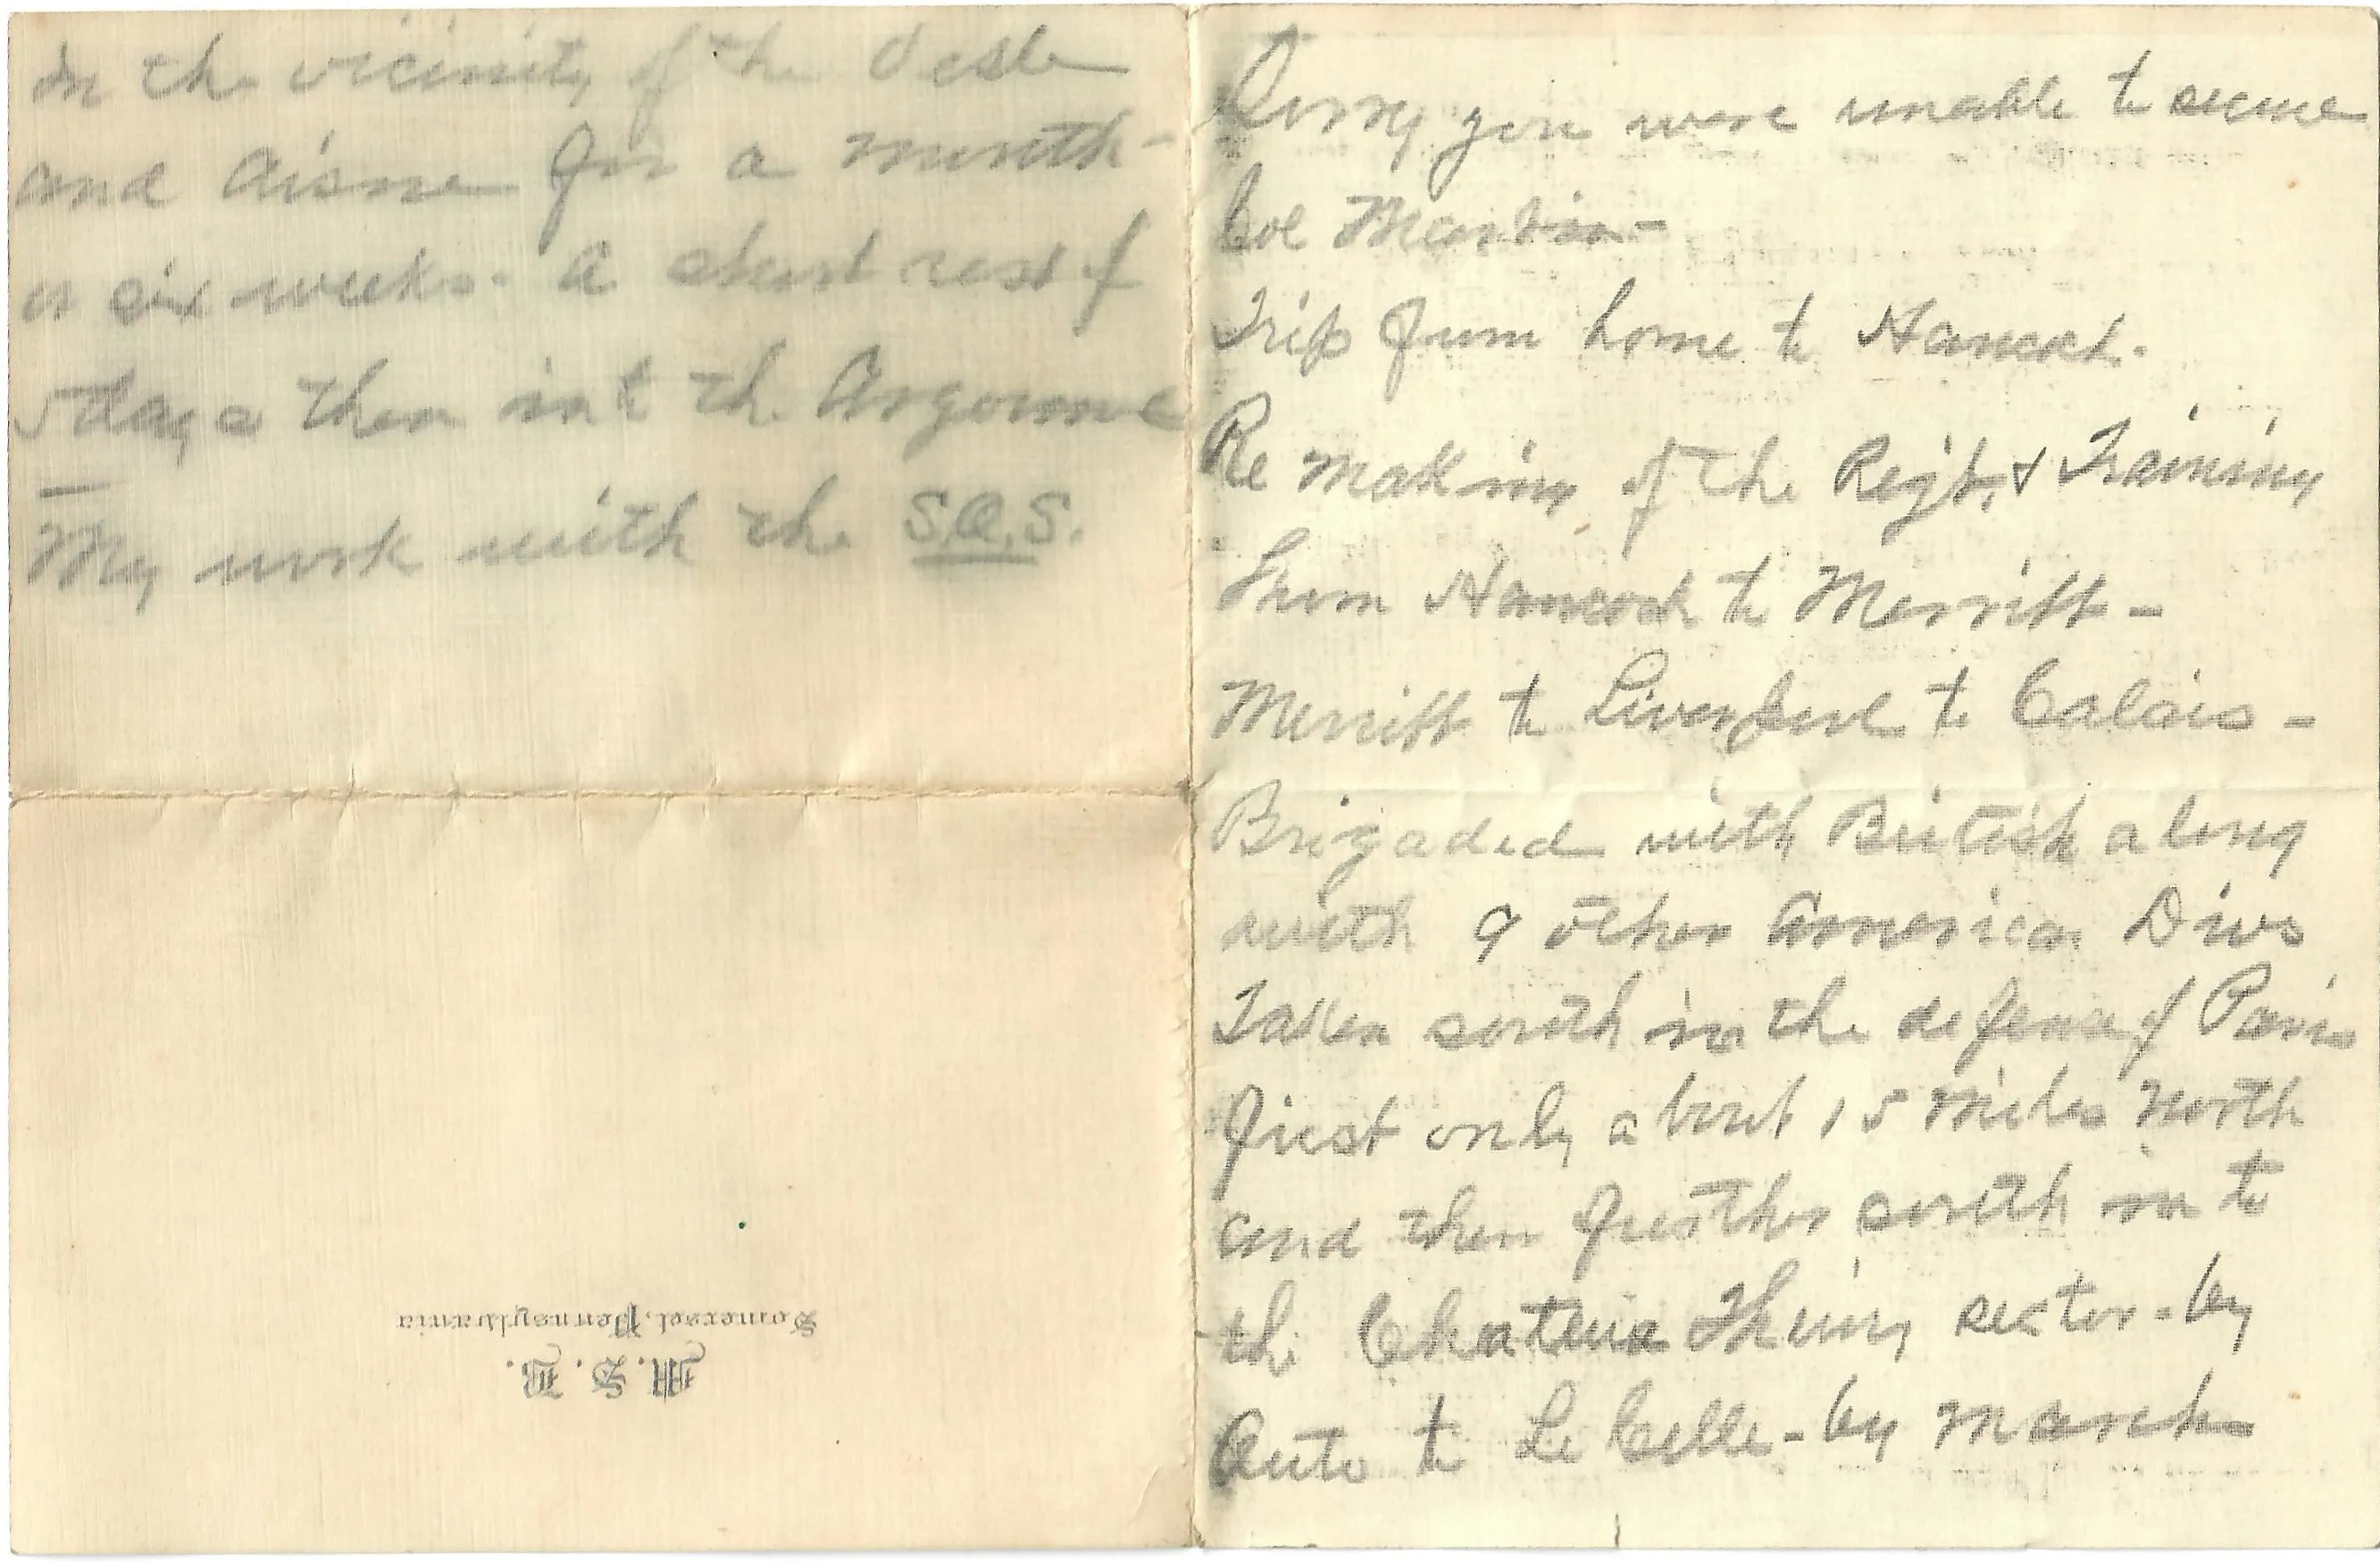 in the vicinity of the Vesle
and Aisne for a month -
or six weeks - a short rest of
5 days then into the Argonne
My work with the S.O.S.
M. S. B.
Somerset, Pennsylvania
Sorry you were unable to secure
Col Martin -
Trip from home to Hancock.
Re making of the Regt, & Training
From Hancock to Merritt -
Merritt to Liverpool to Calais -
Brigaded with British along
with 9 other American Divs
Taken south in the defense of Paris
first only about 15 miles north
and then further south in to
the Chateau Thierry sector - by
Auto to Le Celle - by march